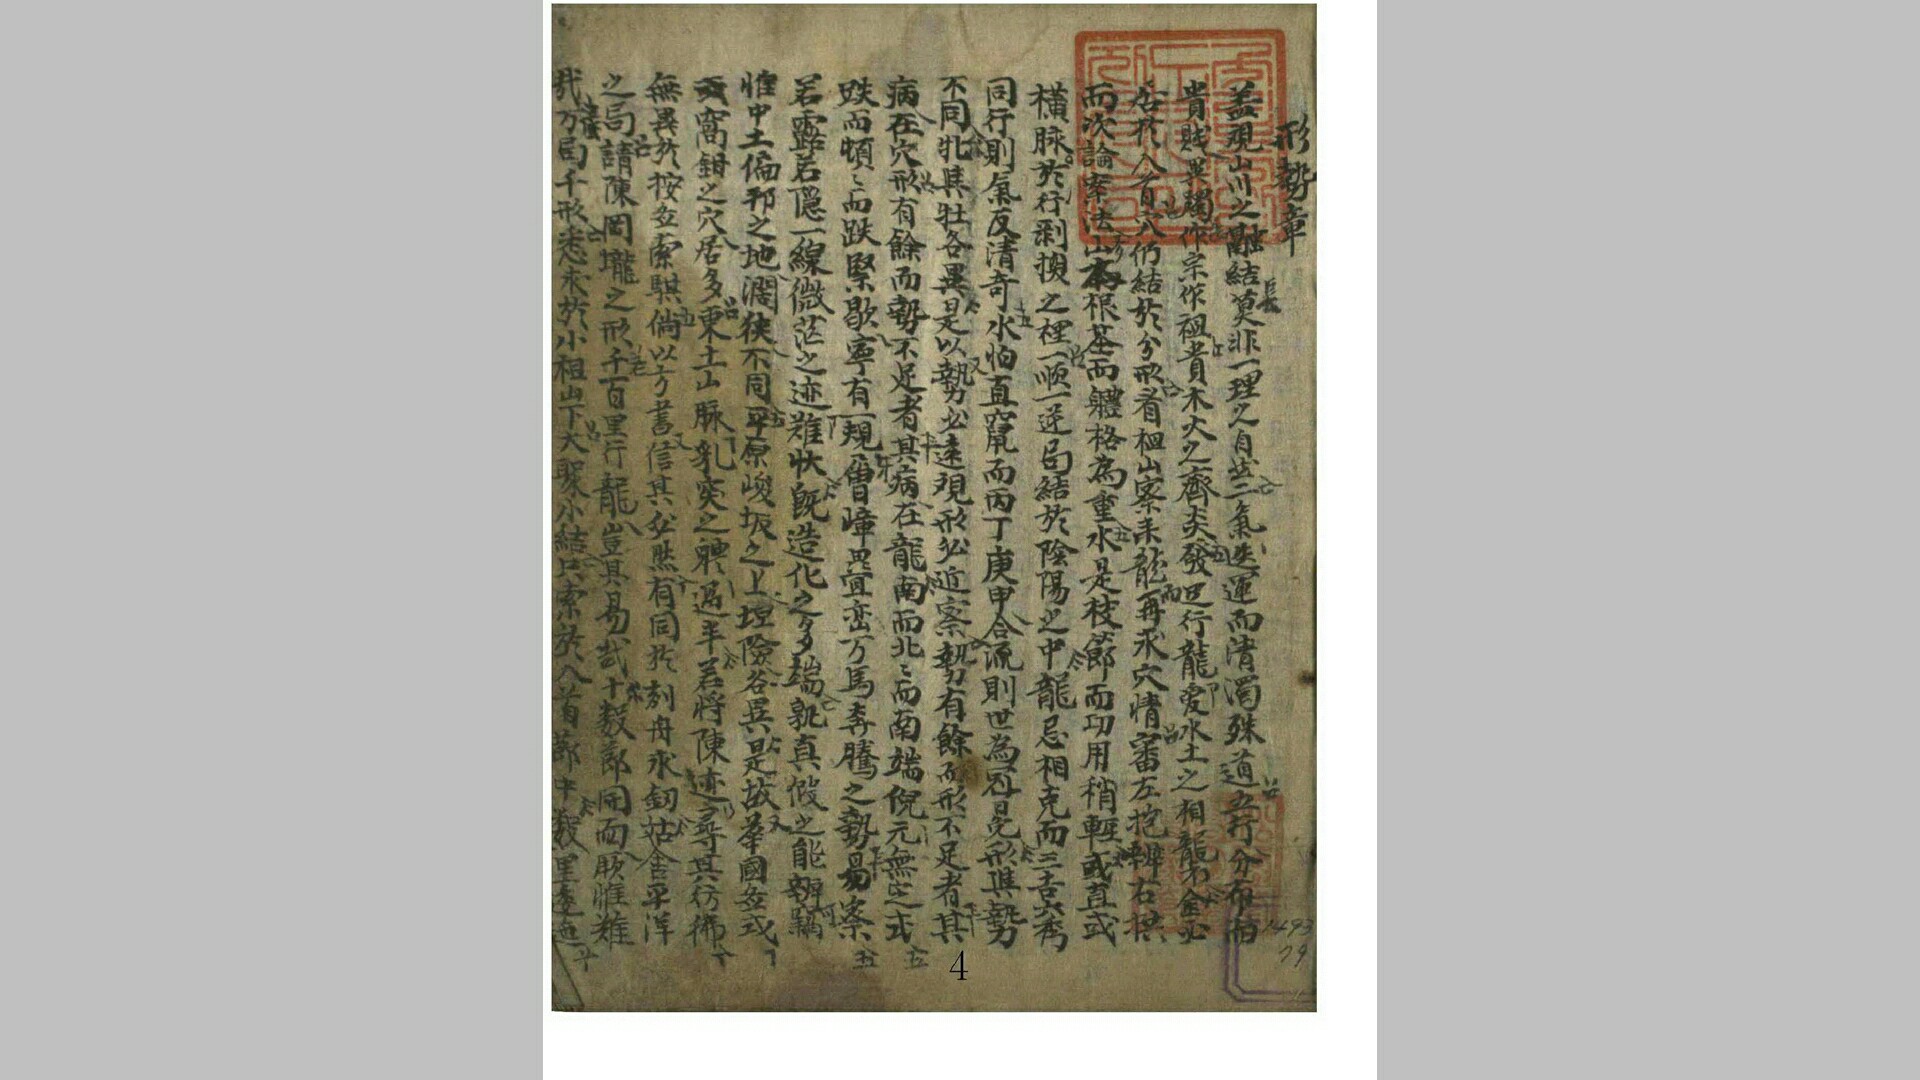 形勢章
蓋觀山川之融結莫非一理之自然二氣迭運而清濁殊道五行分布而
貴賤異躅作宗作祖貴木火之齊炎發迹行龍愛水土之相龍不金必
居於入首六八仍結於分形看祖山察來龍再求穴情審左抱辨右拱
而次論案法山本根基而體格為重水是枝節而功用稍輕或直或
橫脉於行剝換之裡一順一逆局結於陰陽之中龍忌相克而三吉六秀
同行則氣反清奇水怕直竄而丙丁庚甲合流則世為形與勢
不同牝與牡各異是以執勢必遠覌形必近察勢有餘而形不足者其
病在穴形有餘而勢不足者其病在龍南而北〻而南端倪元無定式
跌而頓〻而跌緊歇寧有一規層嶂疊巒万馬奔騰之勢易察
若露若隱一線微茫之迹難状既造化之多端孰真假之能辨竊
惟中土偏邦之地濶狹不同平原峻坂之上坦險各異是故華國多或
窩鉗之穴居多東土山脉乳突之聘過半若將陳迹尋其彷彿
無異於按圖索騏倘以方書信其必然有同於刻舟求釼姑舍平洋
之局請陳岡壠之形千百里行龍豈其易哉十數節開面厥惟難
哉万局千形悉求於小祖山下大聚小結只索於入首節中數里逶迤
4
2493
79